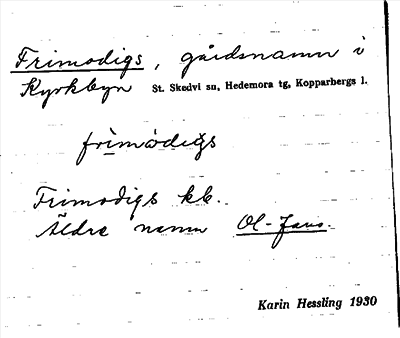 Frimodigs, gårdsnamn i
Kyrkbyn St. Skedvi sn, Hedemora tg, Kopparbergs l.
frìmὼdig̣s
Frimodigs kb.
Äldre namn Ol-Jans.
Karin Hessling 1930